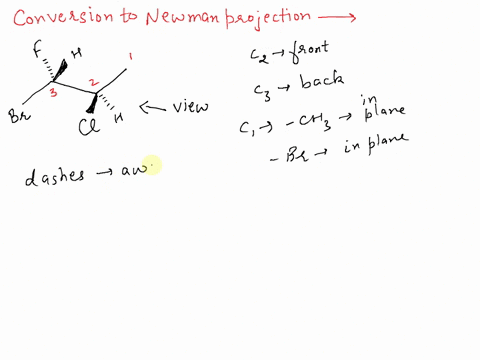 Conversion to Newman projection →
F H
1
2
3
Br
Cl H
← view
C2 → front
C3 → back
C1 → - CH3 → in plane
- Br → in plane
dashes → aw